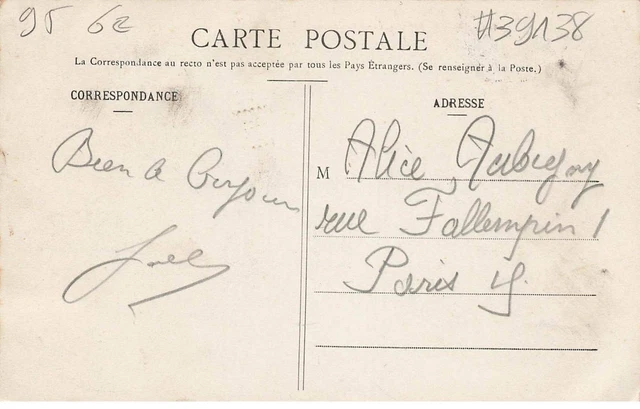 95 62
#39138
CARTE POSTALE
La Correspondance au recto n'est pas acceptée par tous les Pays Étrangers. (Se renseigner à la Poste.)
CORRESPONDANCE
Bien a
ADRESSE
M Alice Aubigny
rue Fallempin 1
Paris 15